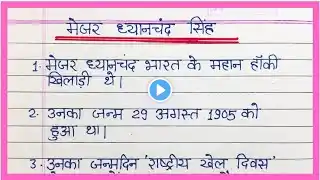 मेजर ध्यानचंद सिंह
1. मेजर ध्यानचंद भारत के महान हॉकी
खिलाड़ी थे।
2. उनका जन्म 29 अगस्त 1905 को
हुआ था।
3. उनका जन्मदिन 'राष्ट्रीय खेल दिवस'